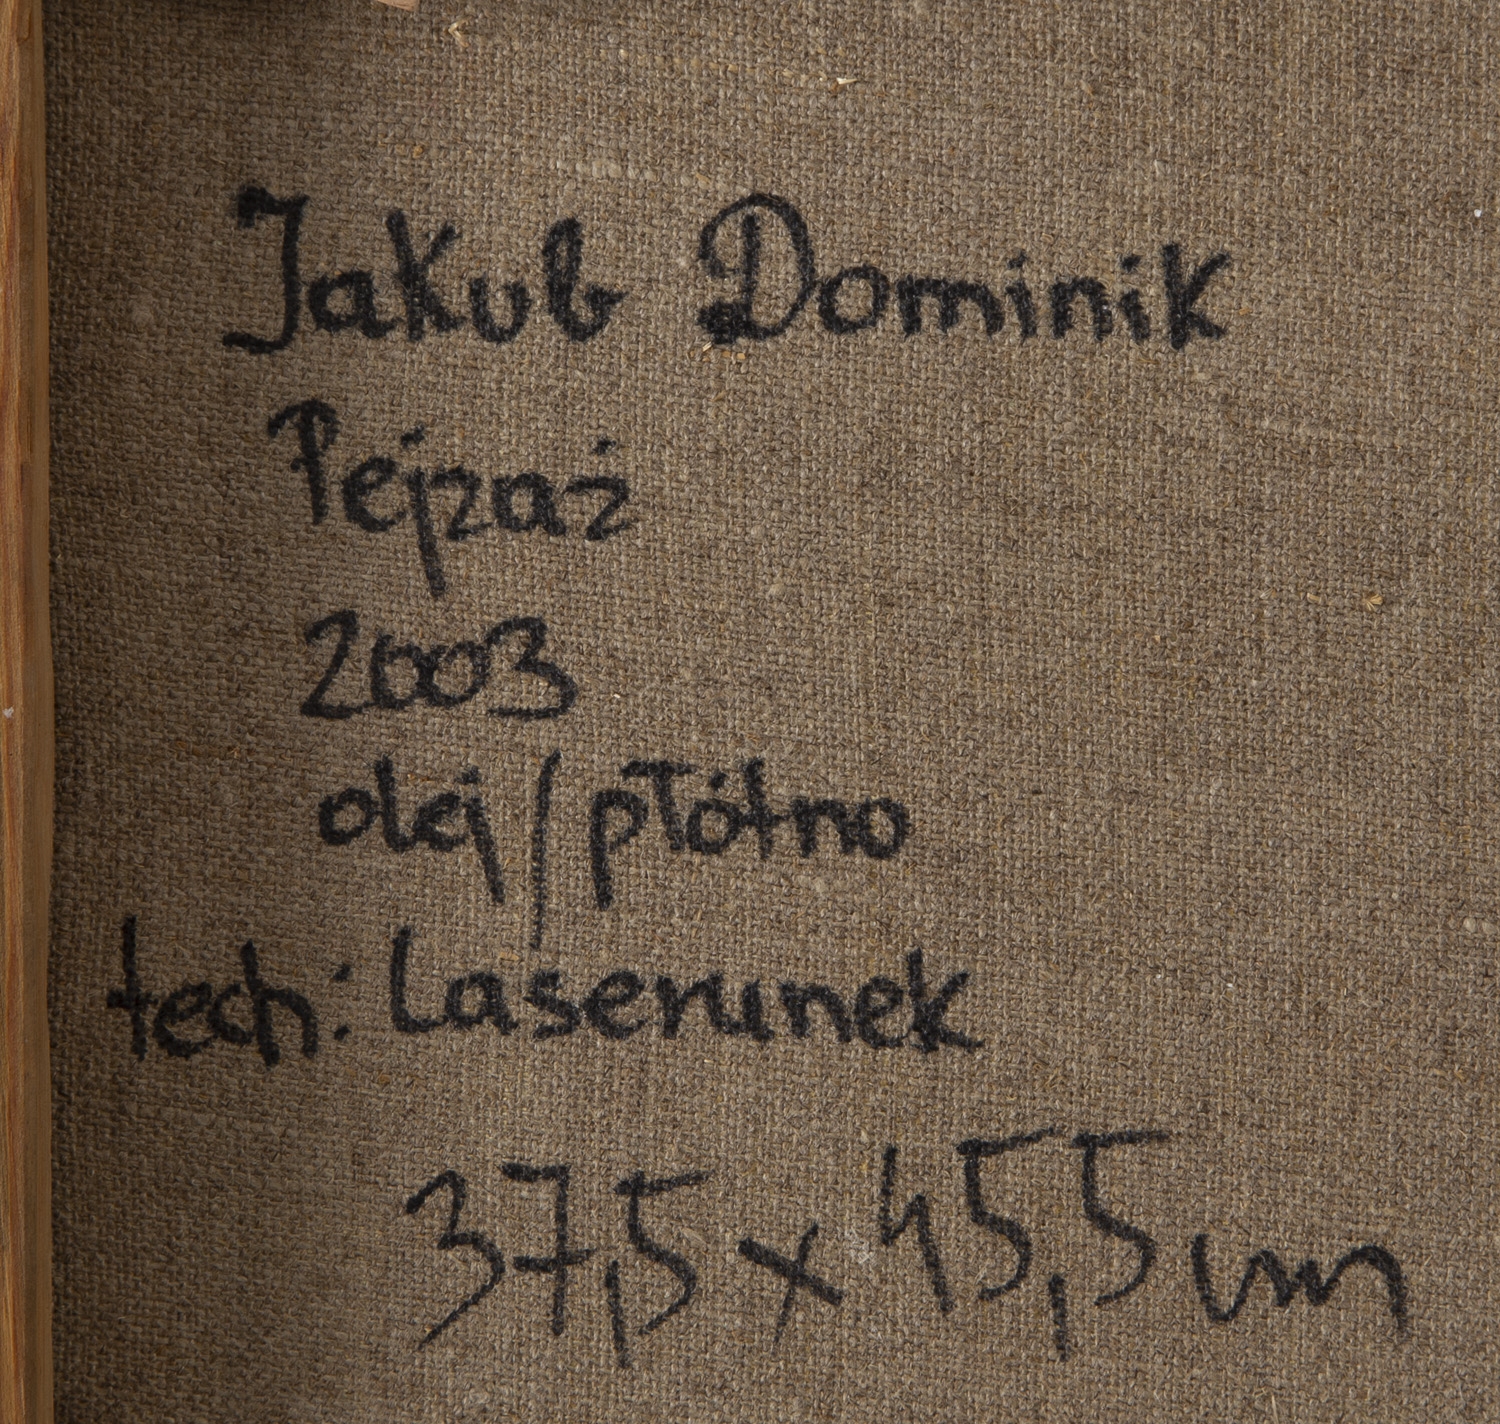 Jakub Dominik
Pejzaż
2003
olej/płótno
tech: Laserunek
37,5 x 45,5 cm